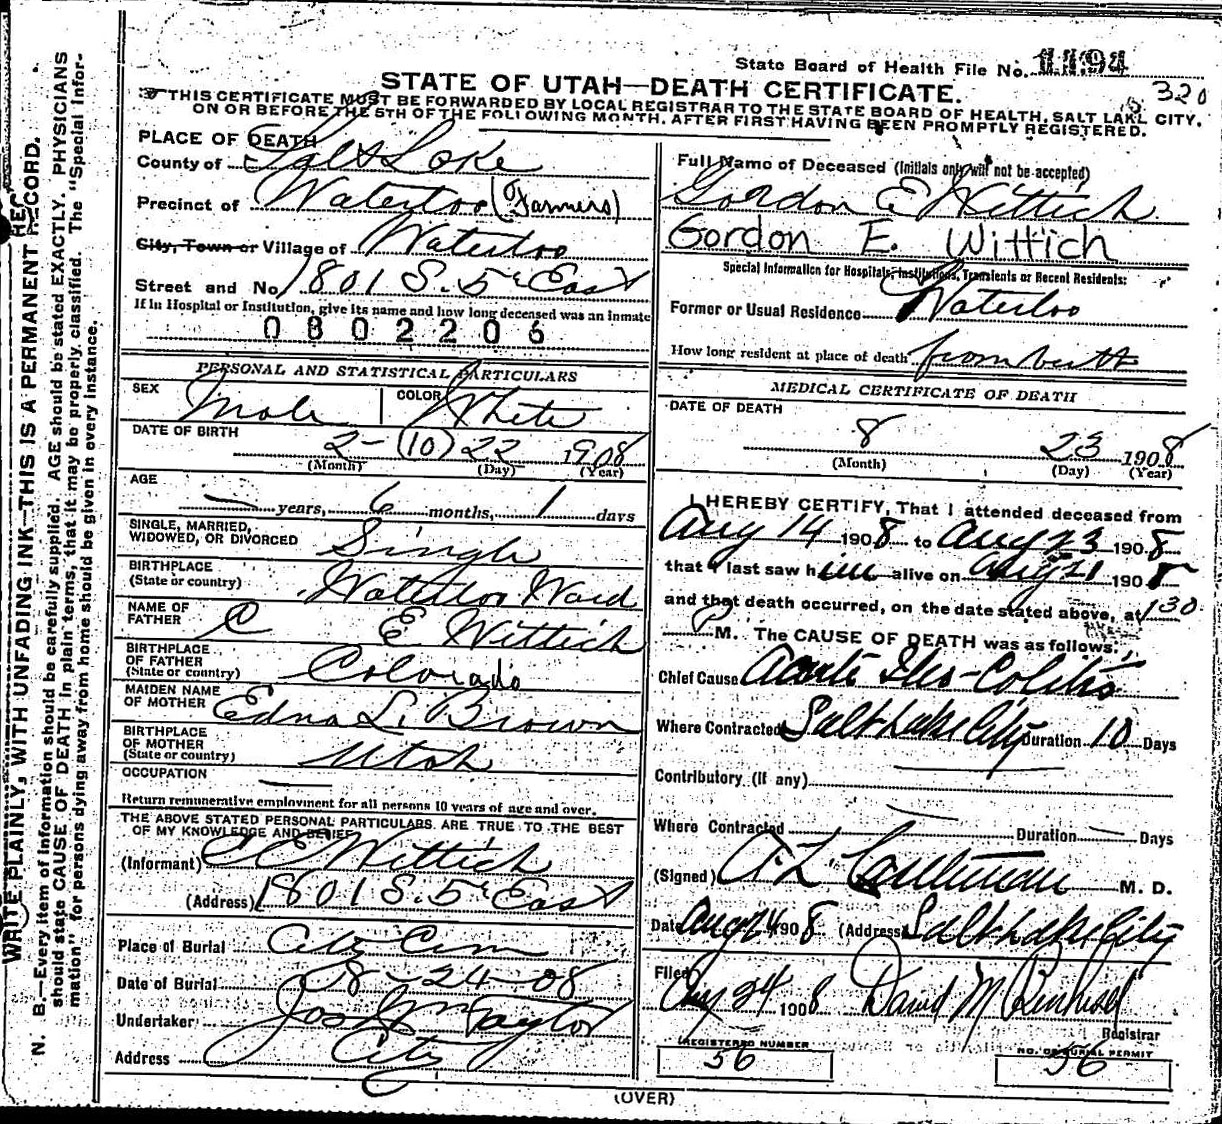 State Board of Health File No. 1194
320
STATE OF UTAH—DEATH CERTIFICATE.
THIS CERTIFICATE MUST BE FORWARDED BY LOCAL REGISTRAR TO THE STATE BOARD OF HEALTH, SALT LAKE CITY,
ON OR BEFORE THE 5TH OF THE FOLLOWING MONTH, AFTER FIRST HAVING BEEN PROMPTLY REGISTERED.
PLACE OF DEATH
County of Salt Lake
Precinct of Waterloo (Farmers)
City, Town or Village of Waterloo
Street and No. 1801 S. 5th East
If in Hospital or Institution, give its name and how long deceased was an inmate
0802206
PERSONAL AND STATISTICAL PARTICULARS
SEX Male COLOR White
DATE OF BIRTH
2 - (10) 22 1908
(Month) (Day) (Year)
AGE
— years, 6 months, 1 days
SINGLE, MARRIED,
WIDOWED, OR DIVORCED Single
BIRTHPLACE
(State or country) Waterloo Ward
NAME OF
FATHER C E Wittich
BIRTHPLACE
OF FATHER
(State or country) Colorado
MAIDEN NAME
OF MOTHER Edna L. Brown
BIRTHPLACE
OF MOTHER
(State or country) Utah
OCCUPATION —
Return remunerative employment for all persons 10 years of age and over.
THE ABOVE STATED PERSONAL PARTICULARS ARE TRUE TO THE BEST
OF MY KNOWLEDGE AND BELIEF
(Informant) C E Wittich
(Address) 1801 S. 5th East
Place of Burial City Cem
Date of Burial 8-24-08
Undertaker Jos Wm Taylor
Address City
Full Name of Deceased (Initials only will not be accepted)
Gordon E Wittich
Gordon E. Wittich
Special Information for Hospitals, Institutions, Transients or Recent Residents:
Former or Usual Residence Waterloo
How long resident at place of death from birth
MEDICAL CERTIFICATE OF DEATH
DATE OF DEATH
8 23 1908
(Month) (Day) (Year)
I HEREBY CERTIFY, That I attended deceased from
Aug 14 1908 to Aug 23 1908
that I last saw him alive on Aug 21 1908
and that death occurred, on the date stated above, at 1 30
P M. The CAUSE OF DEATH was as follows:
Chief Cause Acute Ileo-Colitis
Where Contracted Salt Lake City Duration 10 Days
Contributory (if any)
Where Contracted Duration — Days
(Signed) A. L. M. D.
Date Aug 24 1908 (Address) Salt Lake City
Filed
Aug 24 1908 David M
Registrar
REGISTERED NUMBER
56
NO. OF BURIAL PERMIT
56
(OVER)
WRITE PLAINLY, WITH UNFADING INK—THIS IS A PERMANENT RECORD.
N. B.—Every item of information should be carefully supplied. AGE should be stated EXACTLY. PHYSICIANS
should state CAUSE OF DEATH in plain terms, that it may be properly classified. The "Special Infor-
mation" for persons dying away from home should be given in every instance.